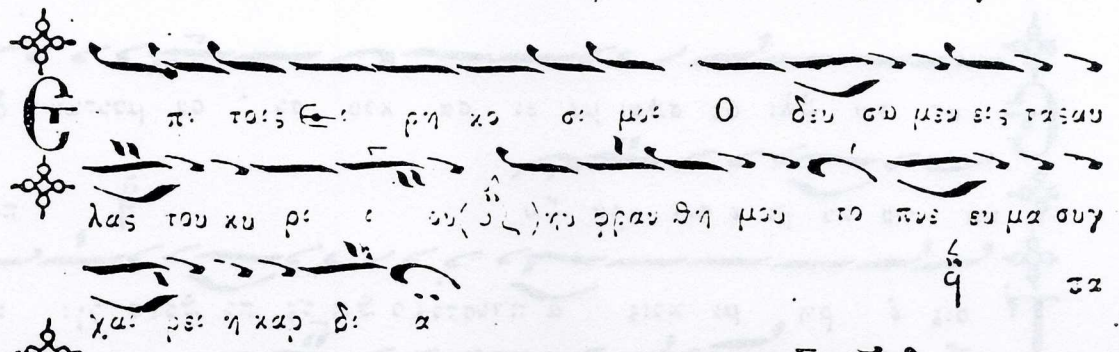 Ε πι τοις ει ρη κο σι μοι Ο δευ σω μεν εις τας αυ
λας του κυ ρι ι ου ηυ φραν θη μου το πνε ευ μα συγ
χαι ρει η καρ δι α